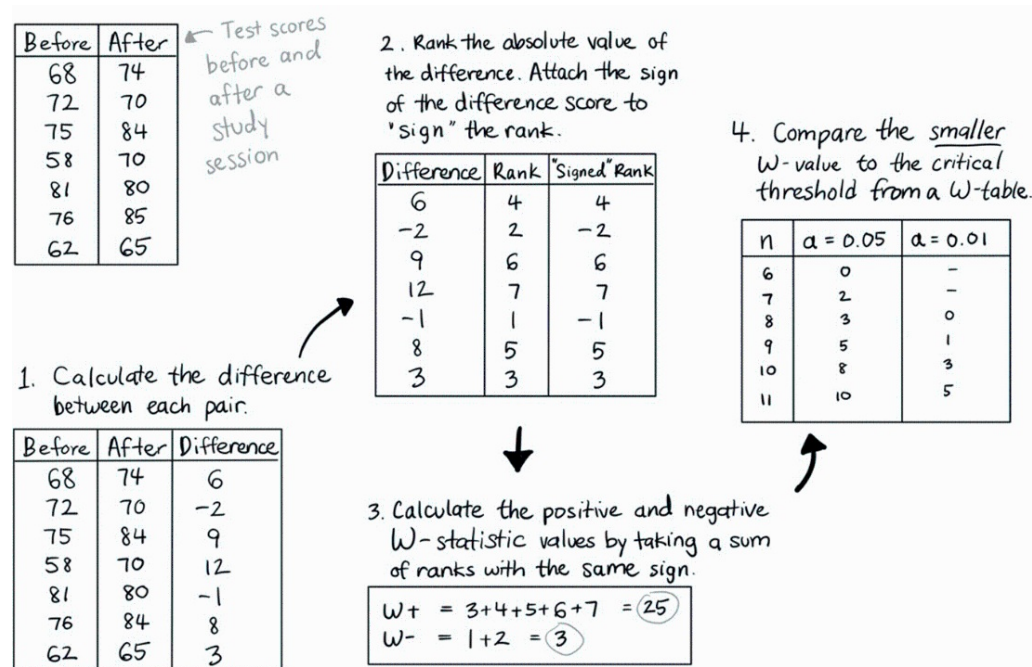 Before After
68 74
72 70
75 84
58 70
81 80
76 85
62 65
← Test scores
before and
after a
study
session
1. Calculate the difference
between each pair.
Before After Difference
68 74 6
72 70 -2
75 84 9
58 70 12
81 80 -1
76 84 8
62 65 3
2. Rank the absolute value of
the difference. Attach the sign
of the difference score to
"sign" the rank.
Difference Rank "Signed" Rank
6 4 4
-2 2 -2
9 6 6
12 7 7
-1 1 -1
8 5 5
3 3 3
3. Calculate the positive and negative
W-statistic values by taking a sum
of ranks with the same sign.
W+ = 3+4+5+6+7 = 25
W- = 1+2 = 3
4. Compare the smaller
W-value to the critical
threshold from a W-table.
n a = 0.05 a = 0.01
6 0 -
7 2 -
8 3 0
9 5 1
10 8 3
11 10 5